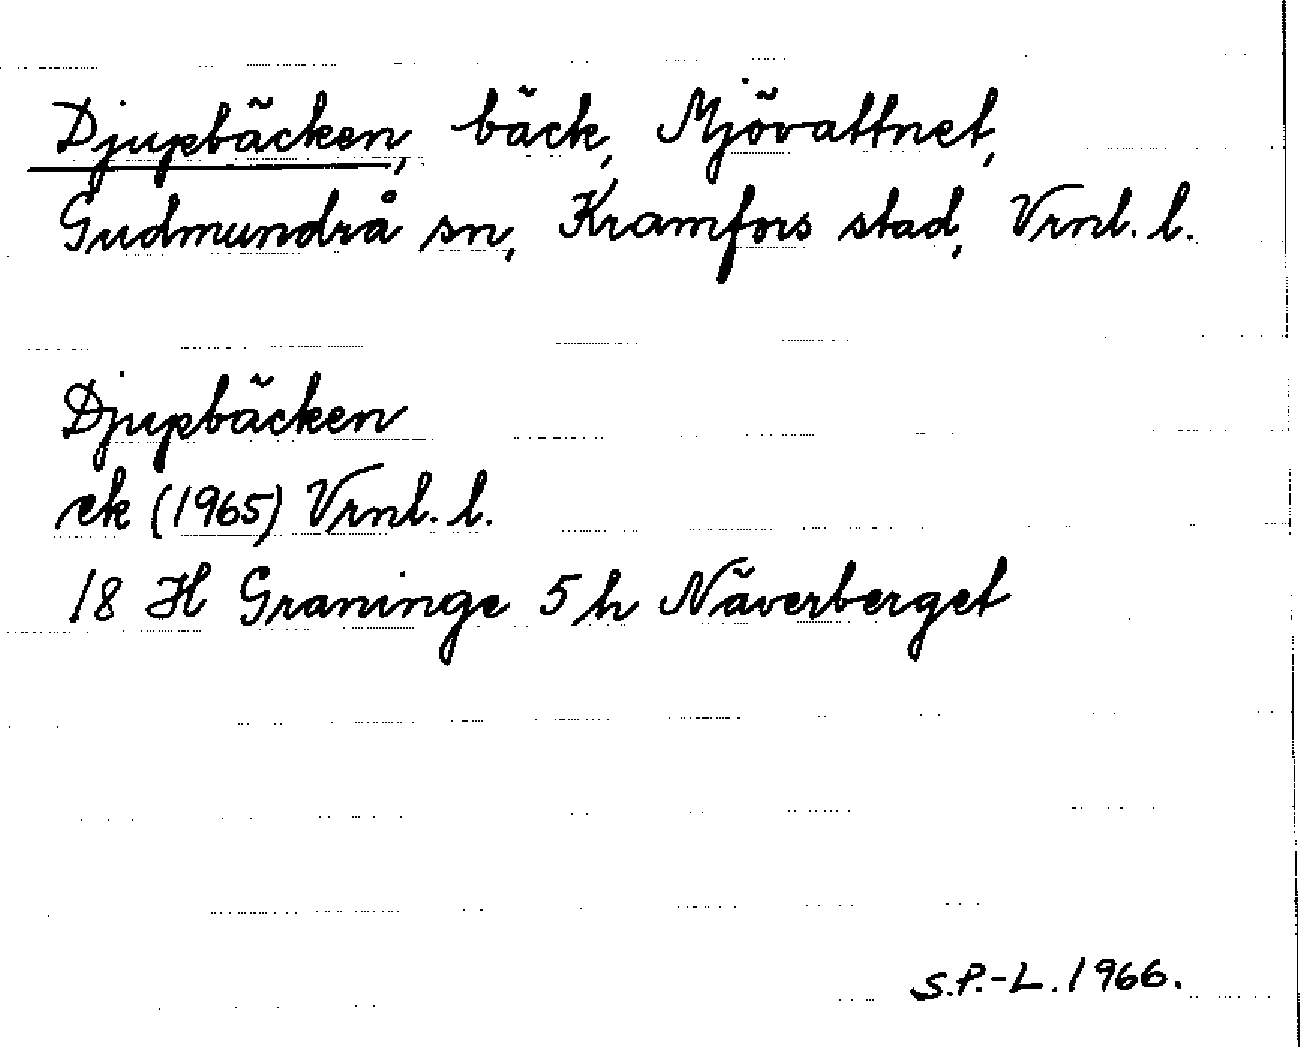 Djupbäcken, bäck, Mjövattnet,
Gudmundrå sn, Kramfors stad, Vrnl. l.
Djupbäcken
ek (1965) Vrnl. l.
18 H Graninge 5 h Näverberget
S.P.-L. 1966.